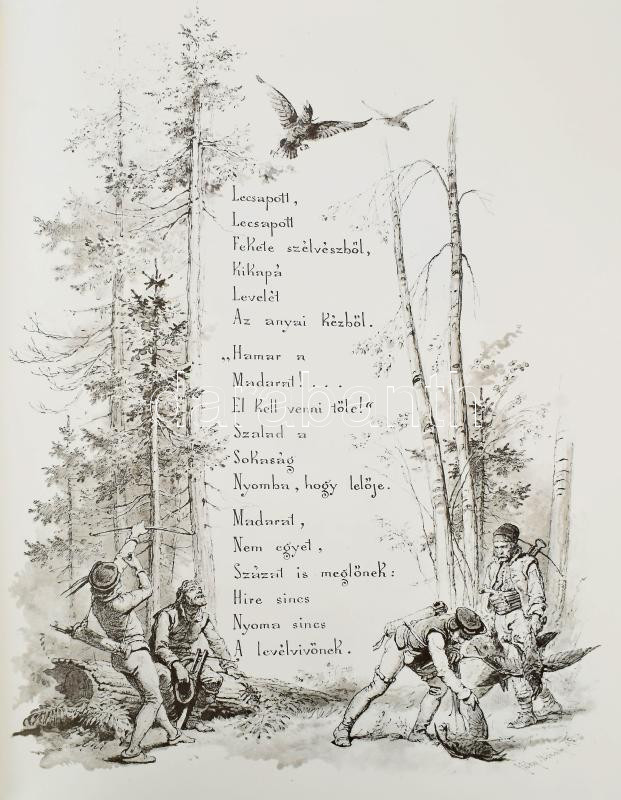 Lecsapott,
Lecsapott
Fekete szélvészből,
Kikapá
Levelét
Az anyai kézből.
„Hamar a
Madarat!...
El kell venni tőle!“
Szalad a
Sokaság
Nyomba, hogy lelője.
Madarat,
Nem egyet,
Százat is meglőnek:
Hire sincs
Nyoma sincs
A levélvivőnek.
darabanth